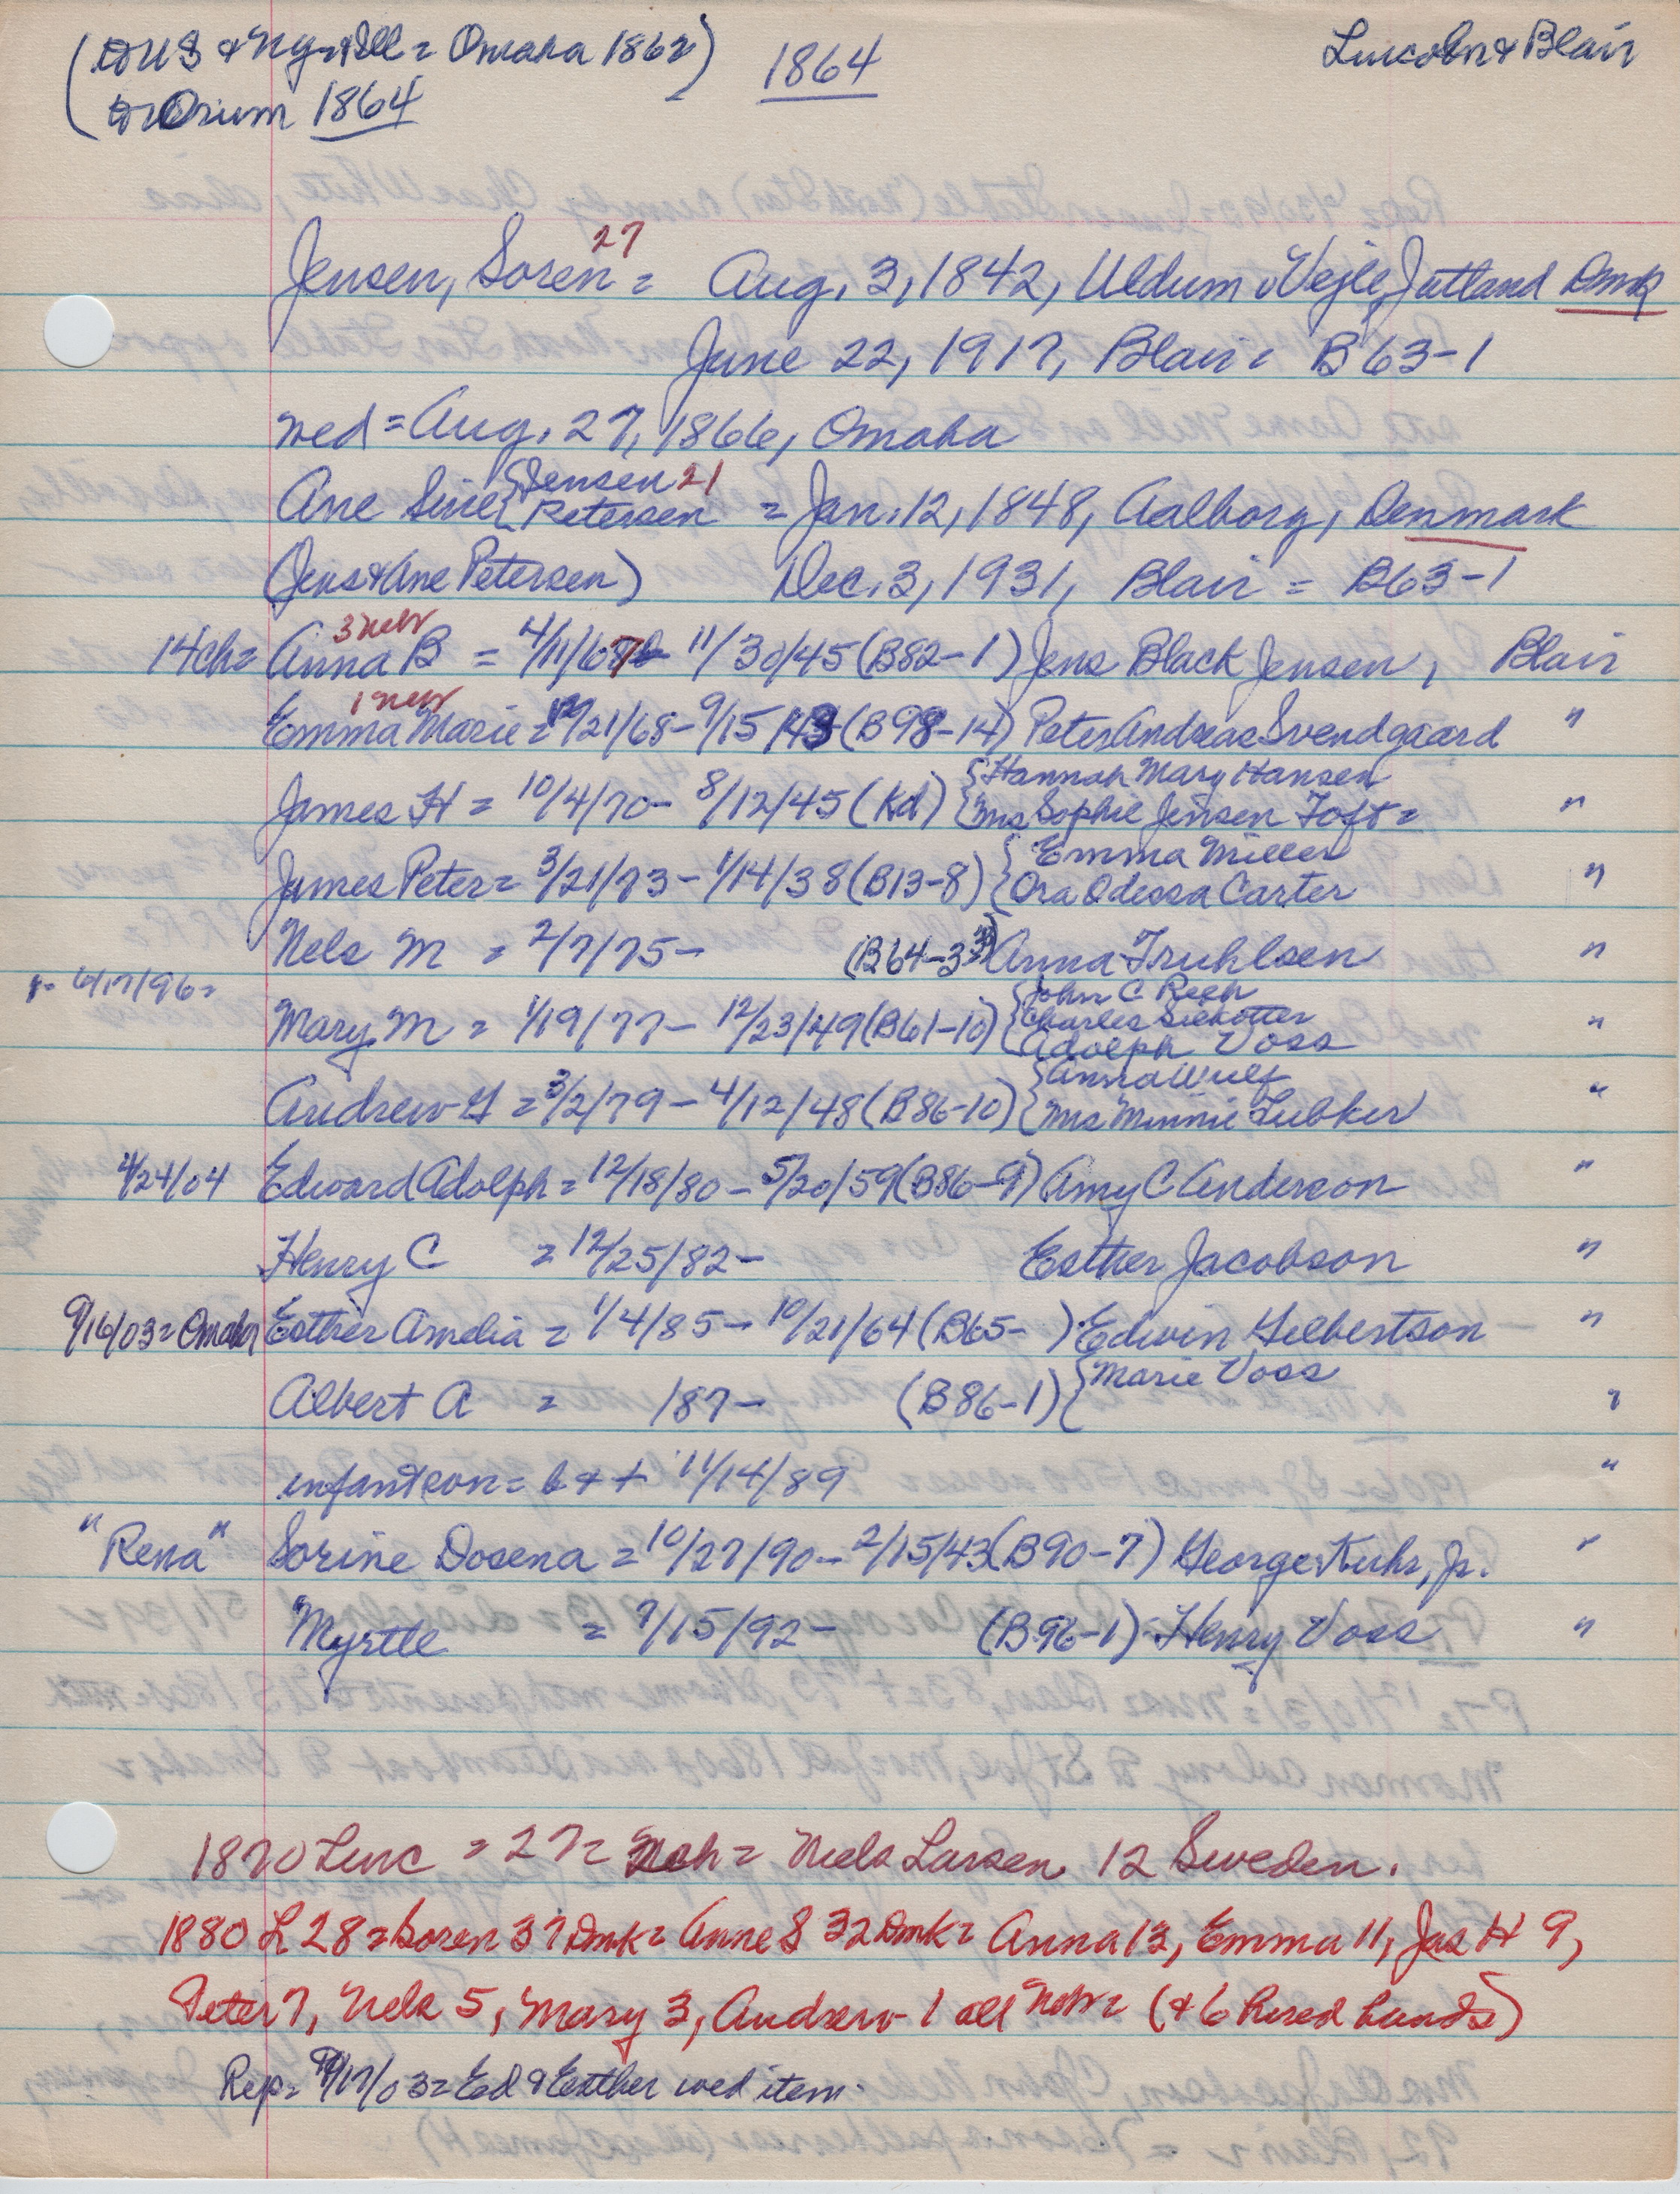 (to US & NY & Ill = Omaha 1862) 1864 Lincoln & Blair
to Orum 1864
27
Jensen, Soren = Aug. 3, 1842, Uldum, Vejle, Jutland Dmk
June 22, 1917, Blair = B63-1
wed = Aug. 27, 1866, Omaha
Ane Sine {Jensen 21
{Petersen = Jan. 12, 1848, Aalborg, Denmark
(Jens & Ane Petersen) Dec. 3, 1931, Blair = B63-1
3 Nebr
14 ch = Anna B = 4/11/67 - 11/30/45 (B82-1) Jens Black Jensen, Blair
1 Nebr
Emma Marie = 12/21/68 - 9/15/43 (B98-14) Peter Andreas Svendgaard "
James H = 10/4/70 - 8/12/45 (Kd) {Hannah Mary Hansen
{Mrs Sophie Jensen Toft = "
James Peter = 3/21/73 - 1/14/38 (B13-8) {Emma Miller
{Ora Odessa Carter "
Nels M = 2/7/75 - (B64-3) Anna Truhlsen "
6/17/96 =
Mary M = 1/19/77 - 12/23/49 (B61-10) {John C Reeh
{Charles Siekotter
{Adolph Voss "
Andrew G = 3/2/79 - 4/12/48 (B86-10) {Anna Wulf
{Mrs Minnie Lubker "
4/24/04 Edward Adolph = 12/18/80 - 5/20/59 (B86-9) Amy C Anderson "
Henry C = 12/25/82 - Esther Jacobson "
9/16/03 = Omaha Esther Amelia = 1/4/85 - 10/21/64 (B65- ) Edwin Gilbertson "
Albert A = 187 - (B86-1) {Marie Voss "
infant son = b & + 11/14/89 "
"Rena" Sorine Dosena = 10/27/90 - 2/15/43 (B90-7) George Kuhr, Jr. "
Myrtle = 7/15/92 - (B96-1) Henry Voss "
1870 Linc = 27 = = Niels Larsen 12 Sweden.
1880 L 28 = Soren 37 Dmk = Anne S 32 Dmk = Anna 13, Emma 11, Jas H 9,
Peter 7, Nels 5, Mary 3, Andrew 1 all Nebr = (& 6 hired hands)
Rep = 9/17/03 = Ed & Esther wed item.